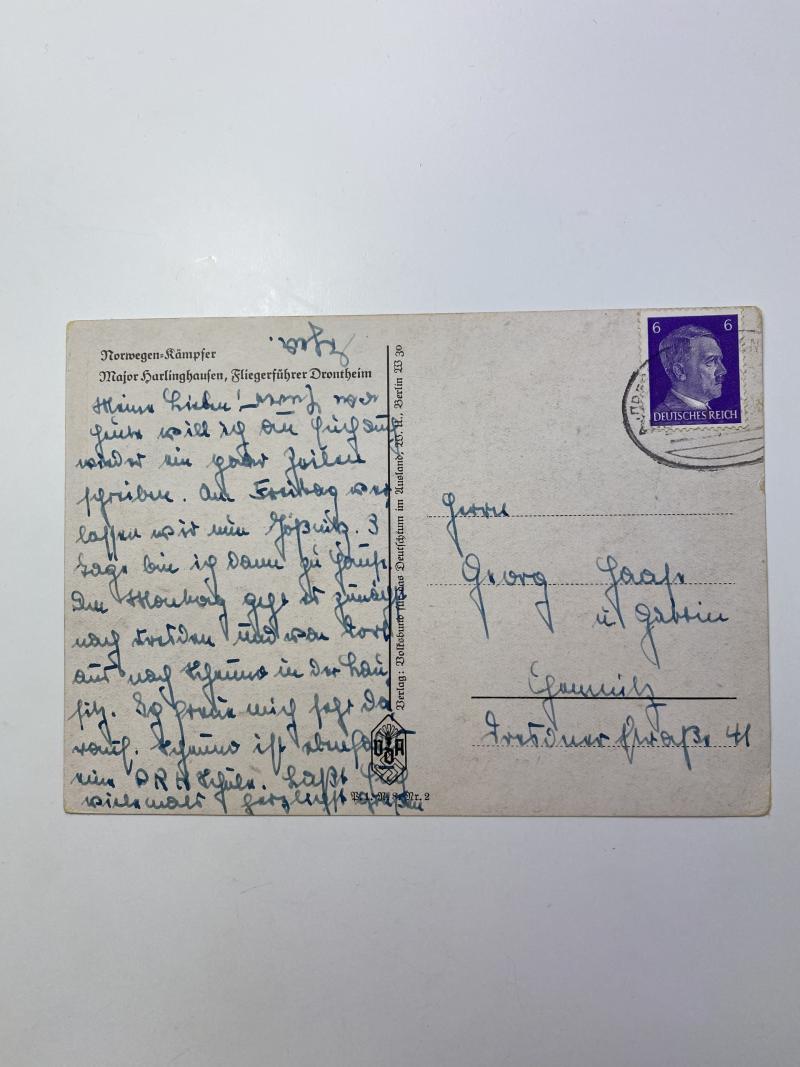 Norwegen-Kämpfer
Major Harlinghausen, Fliegerführer Drontheim
Meine Lieben!
Heute will ich an Euch auch
wieder ein paar Zeilen
schreiben. Am Freitag ver
lassen wir nun Gößnitz. 3
Tage bin ich dann zu Hause
Den Montag geht es zunächst
nach Dresden und von dort
aus nach Kamenz in der Lau
sitz. Ich freue mich sehr da
rauf. ist ebenfalls
eine Schule. Laßt Euch
vielmals herzlichst grüßen
Verlag: Volksbund für das Deutschtum im Ausland, W.K., Berlin W 30
VDA
Nr. 2
6 6
DEUTSCHES REICH
Herrn
Georg Haase
u. Gattin
Chemnitz
Dresdner Straße 41